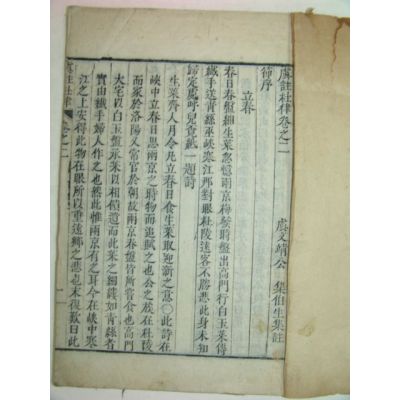 虞註杜律卷之二
虞文靖公 集伯生集註
節序
立春
春日春盤細生菜忽憶兩京梅發時盤出高門行白玉菜傳
纖手送青絲巫峽寒江那對眼杜陵遠客不勝悲此身未知
歸定處呼兒覓紙一題詩
生菜齊人月令凡立春日食生菜取迎新之意〇此詩在
峽中立春日思兩京之時物而追賦之也公之族在杜陵
而家於洛陽又嘗官於朝故兩京春盤皆所嘗食也高門
大宅以白玉盤承菜以相饋遺而此菜之細縷如青絲者
實由纖手婦人作之也然此惟兩京有之耳今在峽中寒
江之上安得此物在眼所以重遠鄉之悲也末復歎曰此
虞註杜律 卷之二 一